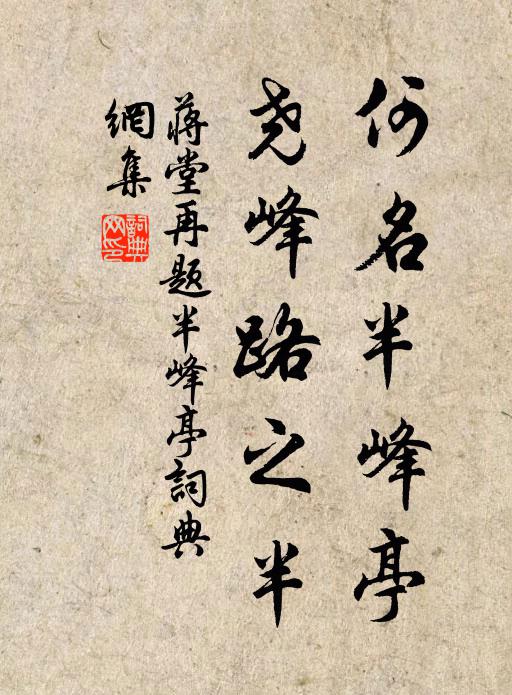 何名半峰亭
尧峰路之半
蔣堂再题半峰亭詞典
網集
詞典
网印